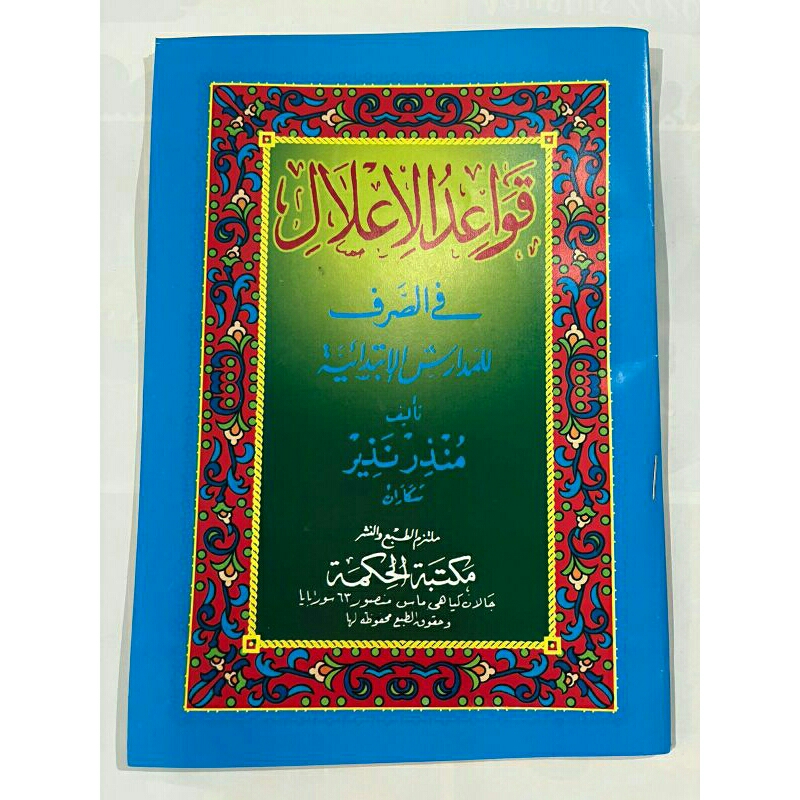 قَوَاعِدُ الْاِعْلَالِ
في الصَّرف
للمدارس الإبتدائية
تأليف
مُنْذِرْ نَذِيرْ
ملتزم الطبع والنشر
مكتبة الحكمة
جالان كياهي ماس منصور ٦٣ سورابايا
وحقوق الطبع محفوظة لها